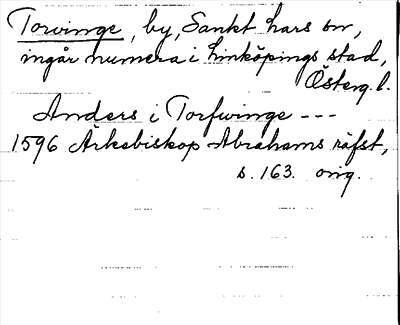 Torvinge, by, Sankt Lars sn,
ingår numera i Linköpings stad,
Österg. l.
Anders i Torfwinge ---
1596 Ärkebiskop Abrahams räfst,
s. 163. orig.